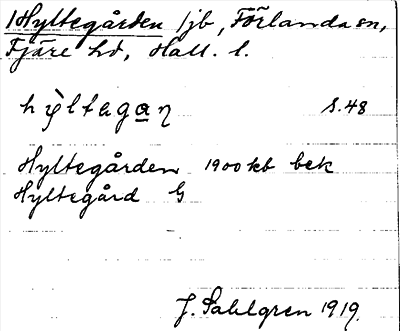 1 Hyltegården /jb, Förlanda sn,
Fjäre hd, Hall. l.
hỳltagan̥ s. 48
Hyltegården 1900 kb bek
Hyltegård G
J. Sahlgren 1919.